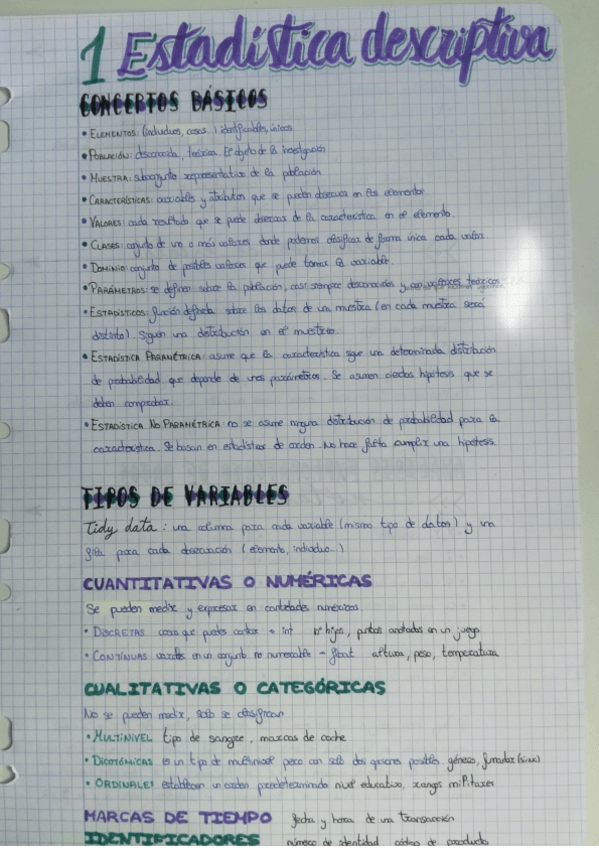 1 Estadística descriptiva
CONCEPTOS BÁSICOS
• ELEMENTOS: (individuos, casos...) identificables, únicos
• POBLACIÓN: desconocida, teórica. El objeto de la investigación
• MUESTRA: subconjunto representativo de la población
• CARACTERÍSTICAS: variables y atributos que se pueden observar en los elementos
• VALORES: cada resultado que se puede observar de la característica en el elemento.
• CLASES: conjunto de uno o más valores donde podemos clasificar de forma única cada valor.
• DOMINIO: conjunto de posibles valores que puede tomar la variable.
• PARÁMETROS: se definen sobre la población, casi siempre desconocidos y son valores teóricos
• ESTADÍSTICOS: función definida sobre los datos de una muestra (en cada muestra será
distinto). Siguen una distribución en el muestreo.
• ESTADÍSTICA PARAMÉTRICA: asume que la característica sigue una determinada distribución
de probabilidad que depende de unos parámetros. Se asumen ciertas hipótesis que se
deben comprobar.
• ESTADÍSTICA NO PARAMÉTRICA: no se asume ninguna distribución de probabilidad para la
característica. Se basan en estadísticos de orden. No hace falta cumplir una hipótesis
TIPOS DE VARIABLES
Tidy data: una columna para cada variable (mismo tipo de datos) y una
fila para cada observación (elemento, individuo...)
CUANTITATIVAS O NUMÉRICAS
Se pueden medir y expresar en cantidades numéricas
• DISCRETAS cosas que puedes contar → int nº hijos, puntos anotados en un juego
• CONTÍNUAS valores en un conjunto no numerable → float altura, peso, temperatura
CUALITATIVAS O CATEGÓRICAS
No se pueden medir, solo se clasifican
• MULTINIVEL tipo de sangre, marcas de coche
• DICOTÓMICAS es un tipo de multinivel pero con solo dos opciones posibles género, fumador (si/no)
• ORDINALES establecen un orden predeterminado nivel educativo, rangos militares
MARCAS DE TIEMPO fecha y hora de una transacción
IDENTIFICADORES número de identidad, código de producto